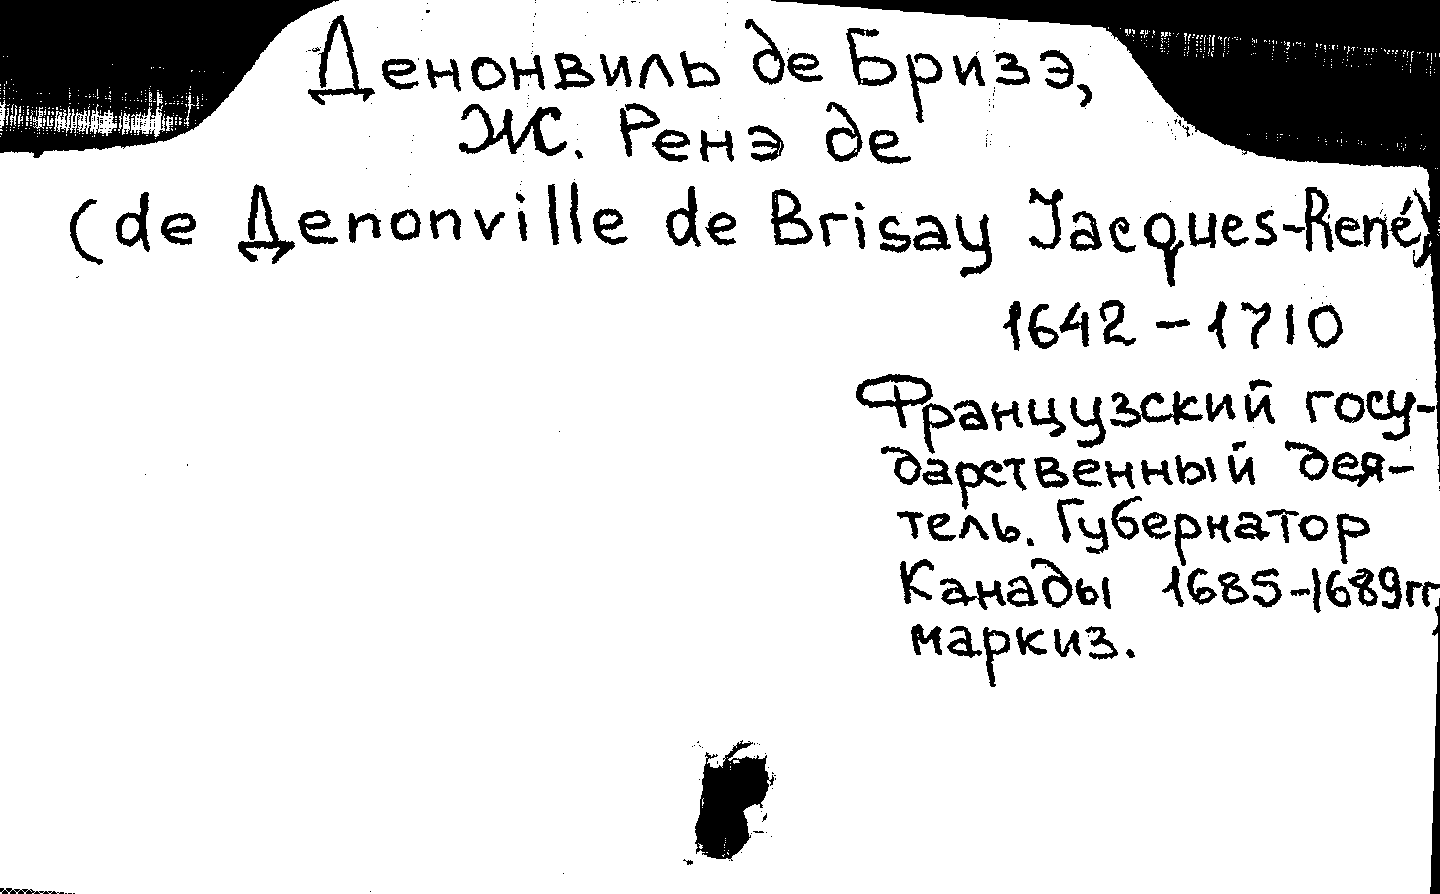 Денонвиль де Бризэ,
Ж. Ренэ де
(de Дenonville de Brisay Jacques-René)
1642 – 1710
Французский госу-
дарственный дея-
тель. Губернатор
Канады 1685-1689гг,
маркиз.